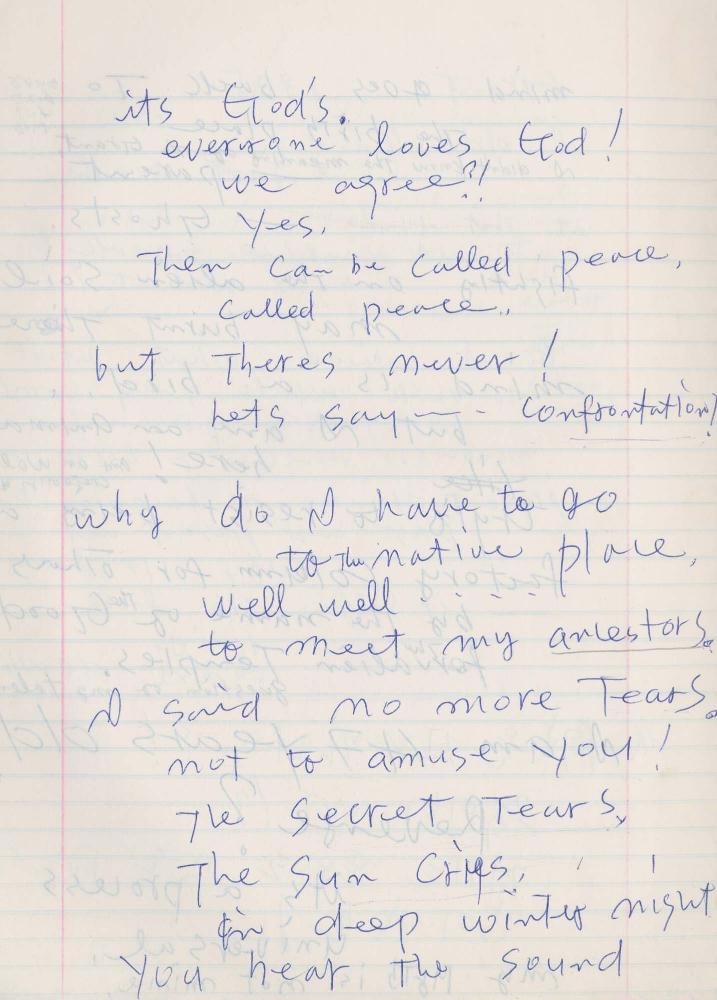 its God's.
everyone loves God!
we agree?!
Yes,
Then can be called peace,
called peace..
but Theres never!
Lets say — - confrontation!
why do I have to go
to The native place,
well well . . . .
to meet my ancestors.
I said no more Tears.
not to amuse you!
The secret Tears,
The Sun Cries,
in deep winter night
You hear the sound